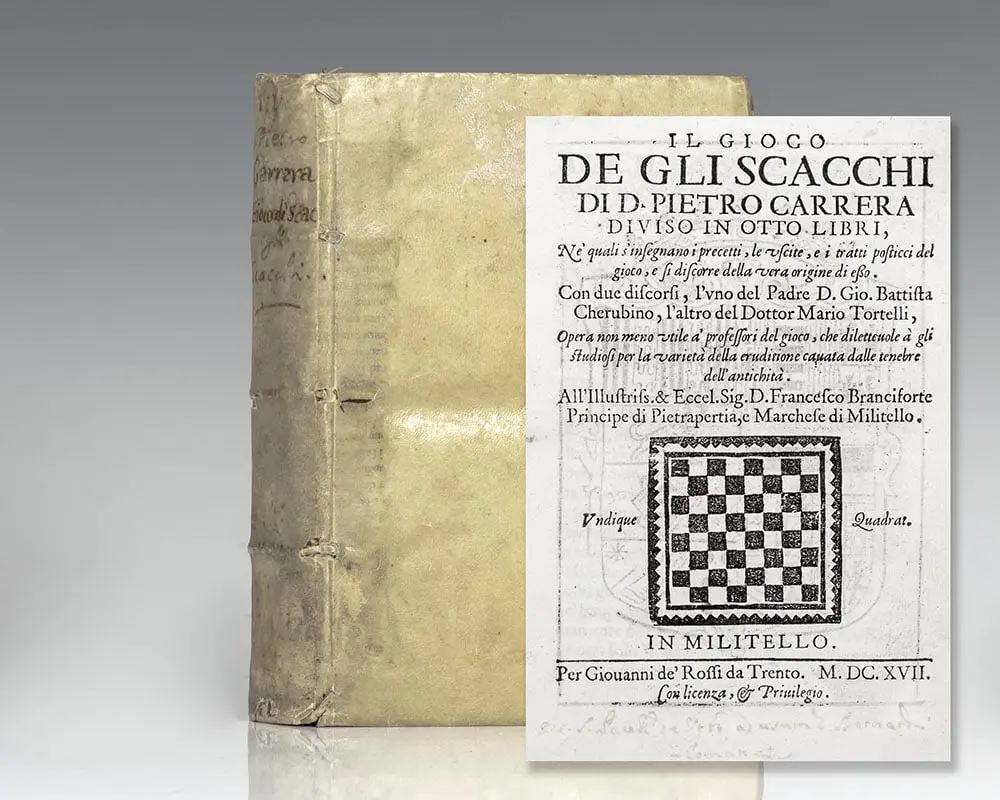 Pietro
Carrera
IL GIOCO
DE GLI SCACCHI
DI D. PIETRO CARRERA
DIVISO IN OTTO LIBRI,
Ne' quali s'insegnano i precetti, le vscite, e i tratti posticci del
gioco, e si discorre della vera origine di esso.
Con due discorsi, l'vno del Padre D. Gio. Battista
Cherubino, l'altro del Dottor Mario Tortelli,
Opera non meno vtile a' professori del gioco, che diletteuole à gli
studiosi per la varietà della eruditione cauata dalle tenebre
dell'antichità.
All'Illustriss. & Eccel. Sig. D. Francesco Branciforte
Principe di Pietrapertia, e Marchese di Militello.
Vndique Quadrat.
IN MILITELLO.
Per Giouanni de' Rossi da Trento. M. DC. XVII.
Con licenza, & Priuilegio.